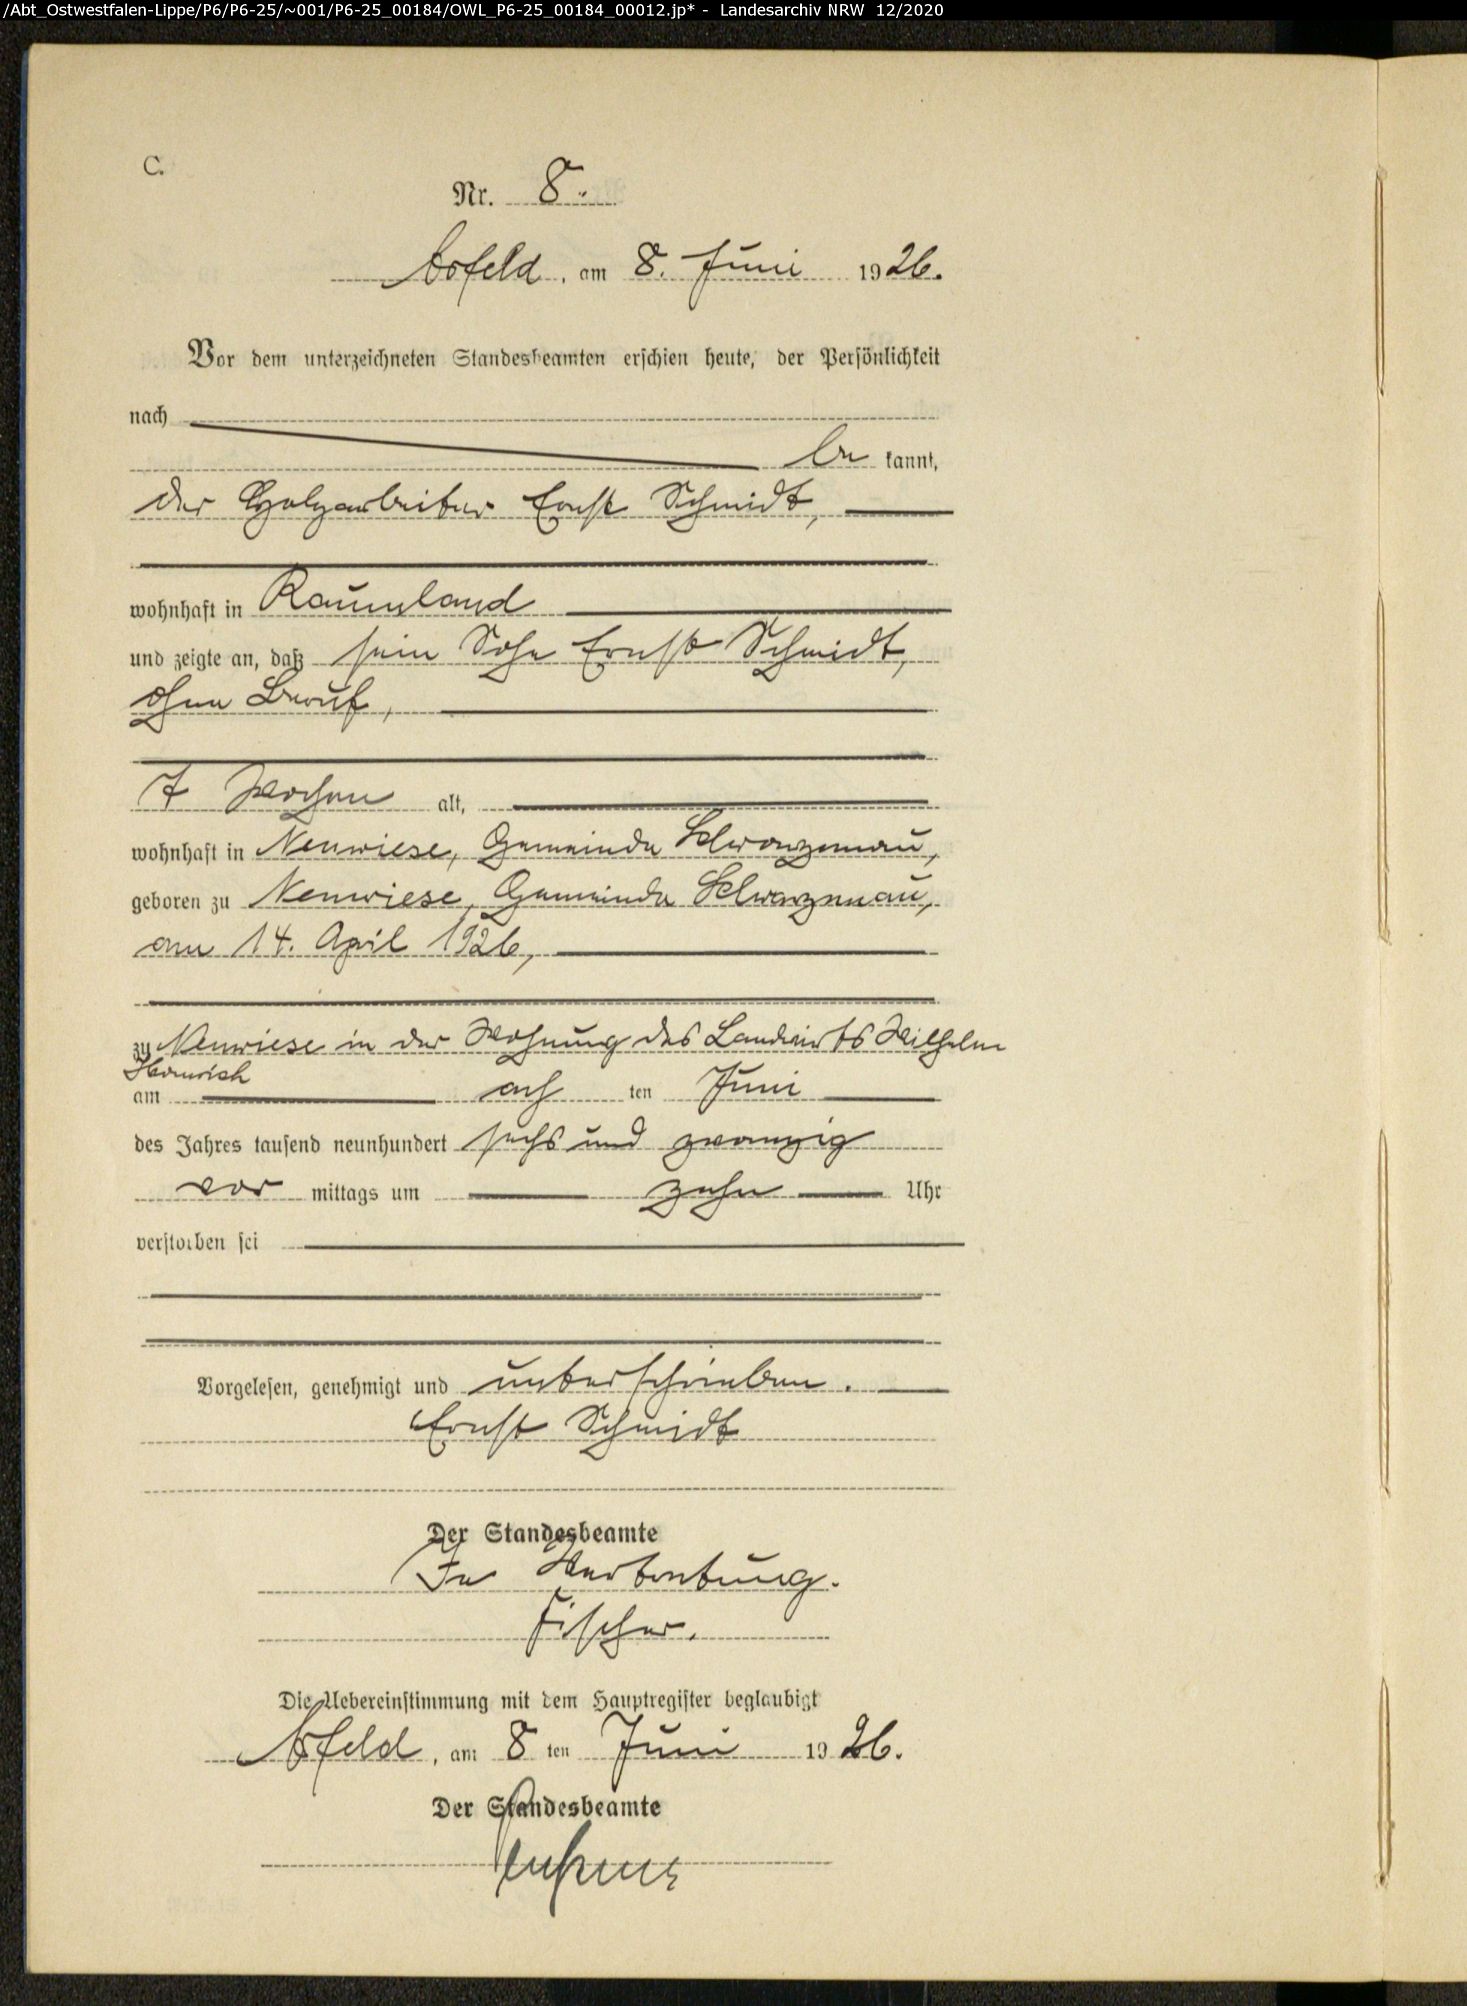 /Abt_Ostwestfalen-Lippe/P6/P6-25/~001/P6-25_00184/OWL_P6-25_00184_00012.jp* - Landesarchiv NRW 12/2020
C.
Nr. 8.
Arfeld, am 8. Juni 1926.
Vor dem unterzeichneten Standesbeamten erschien heute, der Persönlichkeit
nach
be kannt,
der Holzarbeiter Ernst Schmidt,
wohnhaft in Raumland
und zeigte an, daß sein Sohn Ernst Schmidt,
ohne Beruf,
7 Wochen alt,
wohnhaft in Neuwiese, Gemeinde Schwarzenau,
geboren zu Neuwiese, Gemeinde Schwarzenau,
am 14. April 1926,
zu Neuwiese in der Wohnung des Landwirts Wilhelm
am ach ten Juni
des Jahres tausend neunhundert sechs und zwanzig
vor mittags um zehn Uhr
verstorben sei
Vorgelesen, genehmigt und unterschrieben.
Ernst Schmidt
Der Standesbeamte
In Vertretung.
Fischer.
Die Uebereinstimmung mit dem Hauptregister beglaubigt
Arfeld, am 8 ten Juni 1926.
Der Standesbeamte